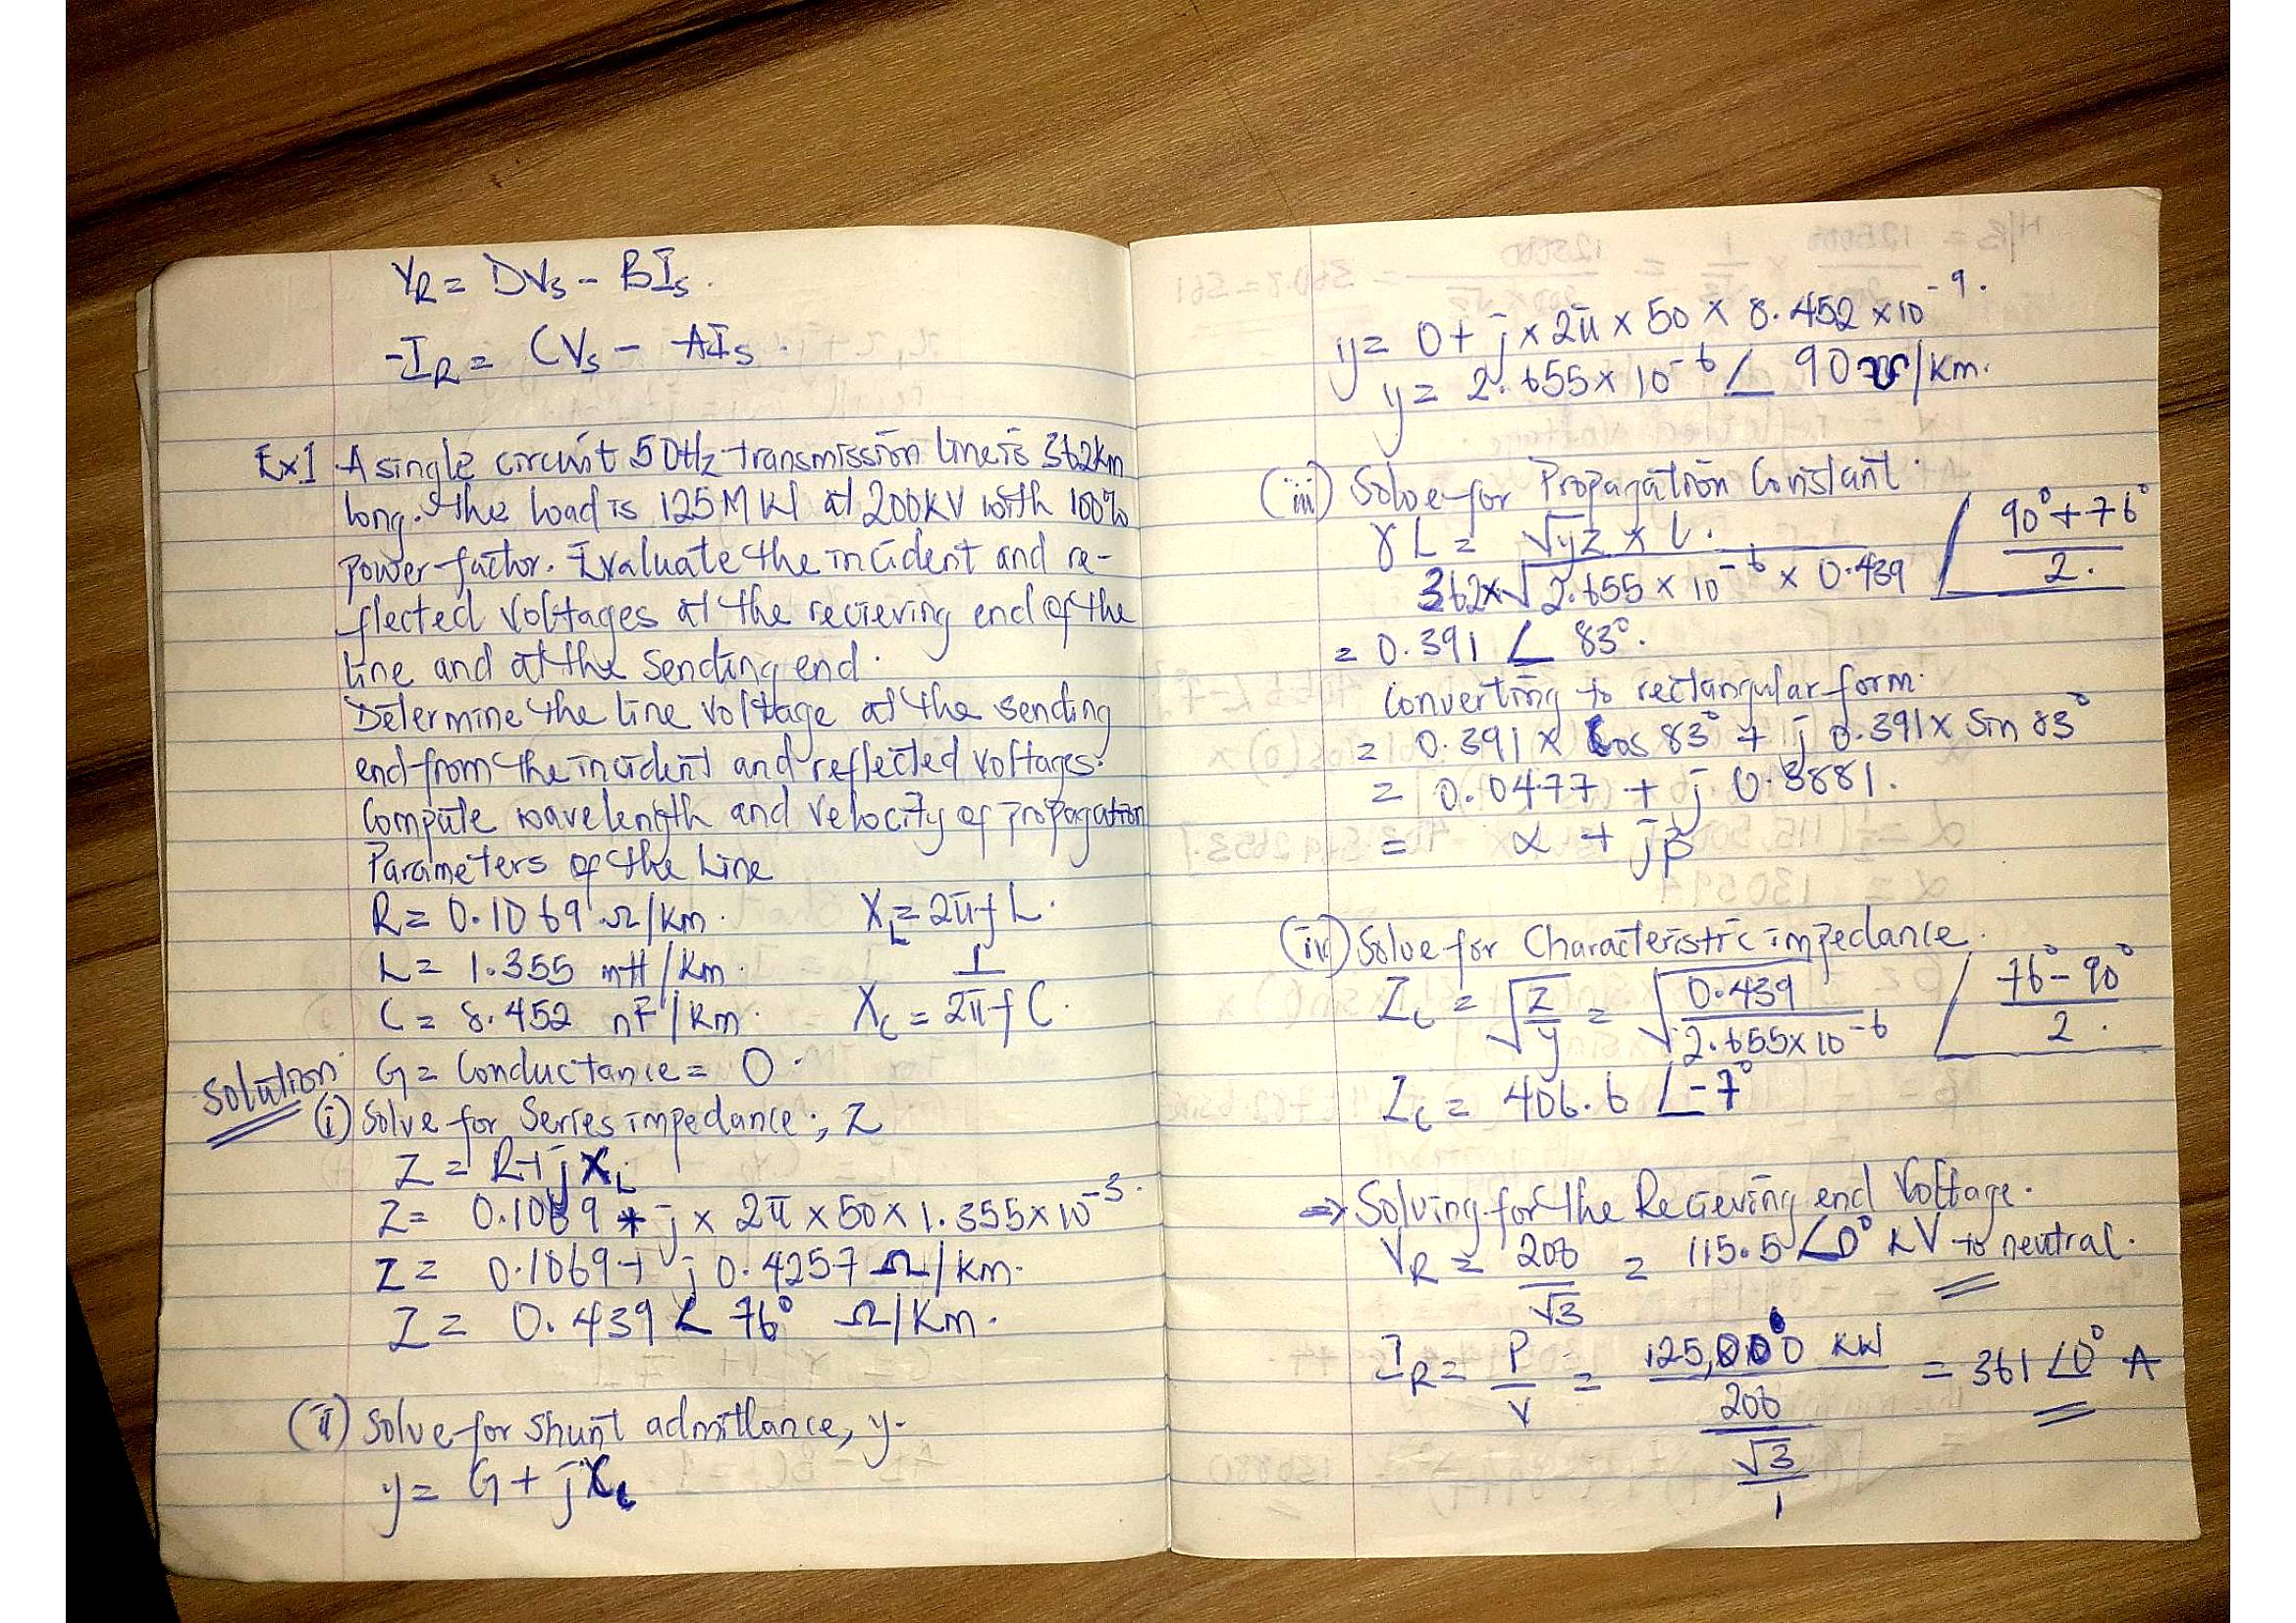 VR = DVs - BIs.
-IR = CVs - AIs.
Ex1 A single circuit 50Hz transmission line is 362km
long. The load is 125MW at 200KV with 100%
power factor. Evaluate the incident and re-
flected voltages at the recieving end of the
line and at the sending end.
Determine the line voltage at the sending
end from the incident and reflected voltages.
Compute wavelength and velocity of propagation
Parameters of the Line
R = 0.1069 Ω/km. XL = 2πfL.
L = 1.355 mH/km.
C = 8.452 nF/km. Xc = 1/2πfC.
G = Conductance = 0.
Solution
(i) Solve for Series impedance; Z
Z = R + jXL
Z = 0.1069 + j x 2π x 50 x 1.355 x 10⁻³.
Z = 0.1069 + j 0.4257 Ω/km.
Z = 0.439 ∠ 76° Ω/km.
(ii) Solve for shunt admittance, y.
y = G + jXc
y = 0 + j x 2π x 50 x 8.452 x 10⁻⁹.
y = 2.655 x 10⁻⁶ ∠ 90 ℧/km.
(iii) Solve for Propagation Constant.
γL = √yz x l.
362 x √2.655 x 10⁻⁶ x 0.439 ∠ 90° + 76°/2.
= 0.391 ∠ 83°.
Converting to rectangular form.
= 0.391 x Cos 83° + j 0.391 x Sin 83°
= 0.0477 + j 0.3881.
= α + jβ
(iv) Solve for Characteristic impedance.
Zc = √z/y = √0.439/2.655x10⁻⁶ ∠ 76° - 90°/2.
Zc = 406.6 ∠-7°
⇒ Solving for the Recieving end Voltage.
VR = 200/√3 = 115.5 ∠0° KV to neutral.
IR = P/V = 125,000 KW/200/√3/1 = 361 ∠0° A